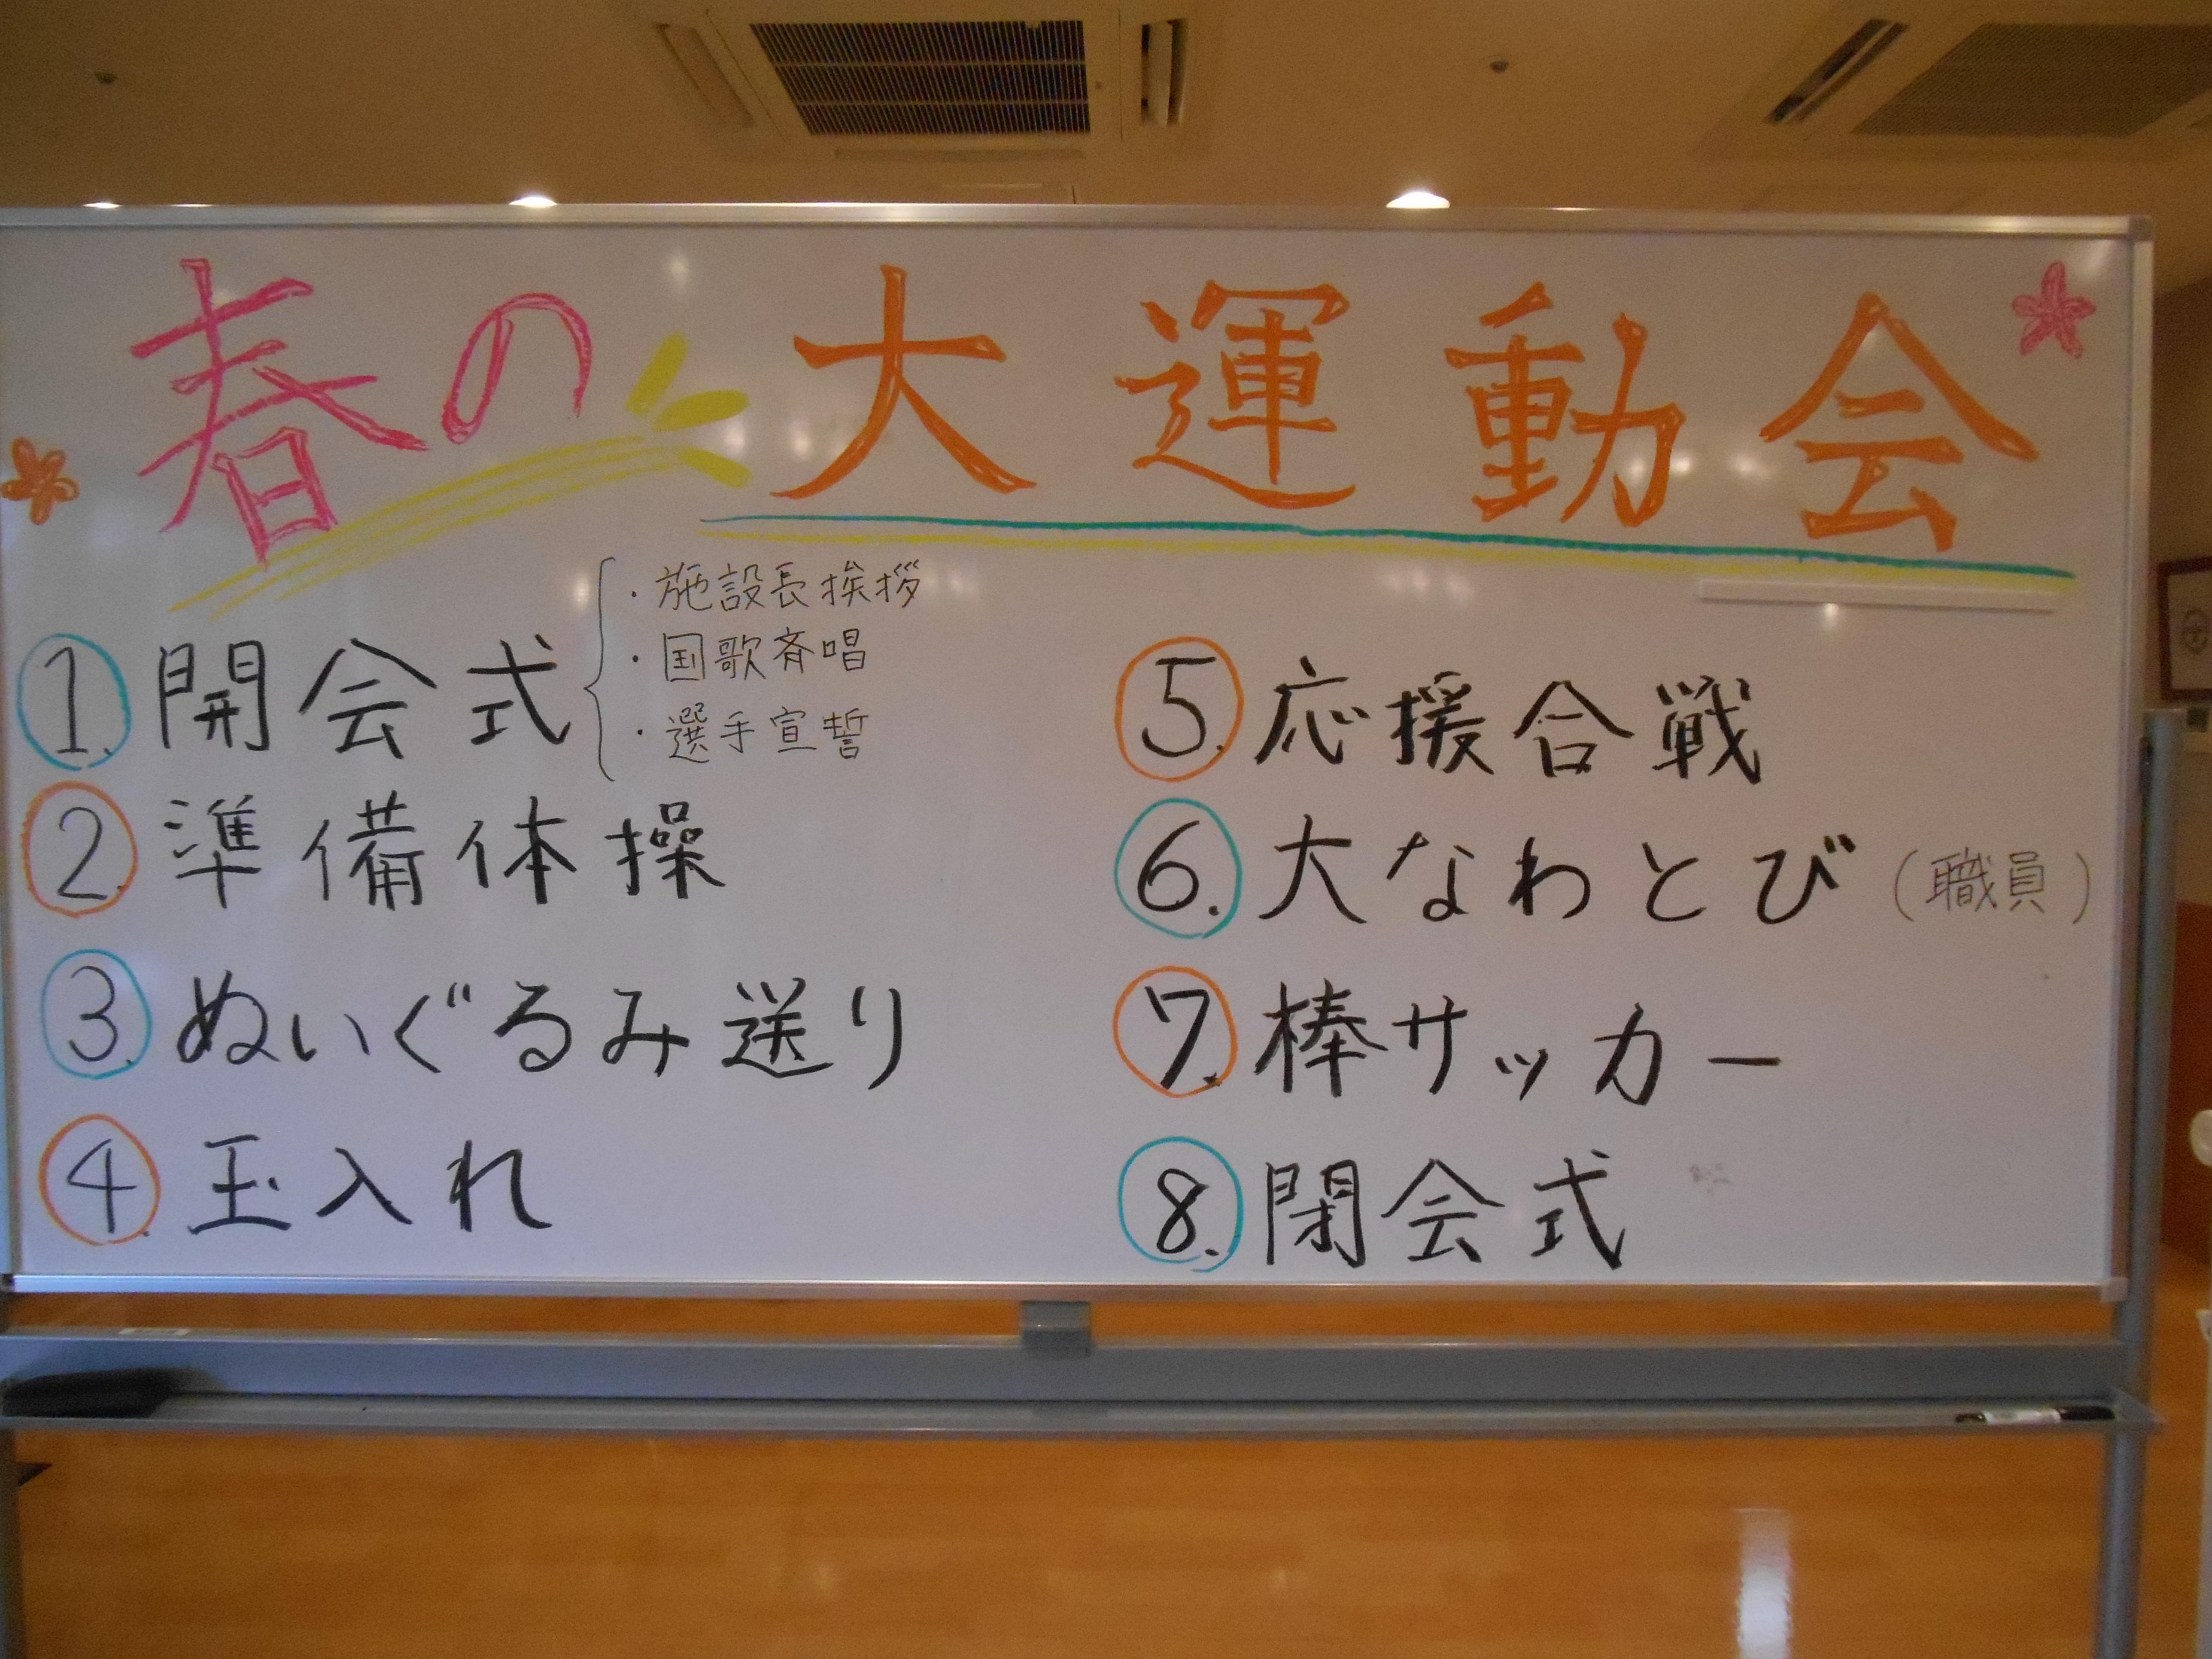 春の大運動会
1. 開会式
・施設長挨拶
・国歌斉唱
・選手宣誓
2. 準備体操
3. ぬいぐるみ送り
4. 玉入れ
5. 応援合戦
6. 大なわとび(職員)
7. 棒サッカー
8. 閉会式